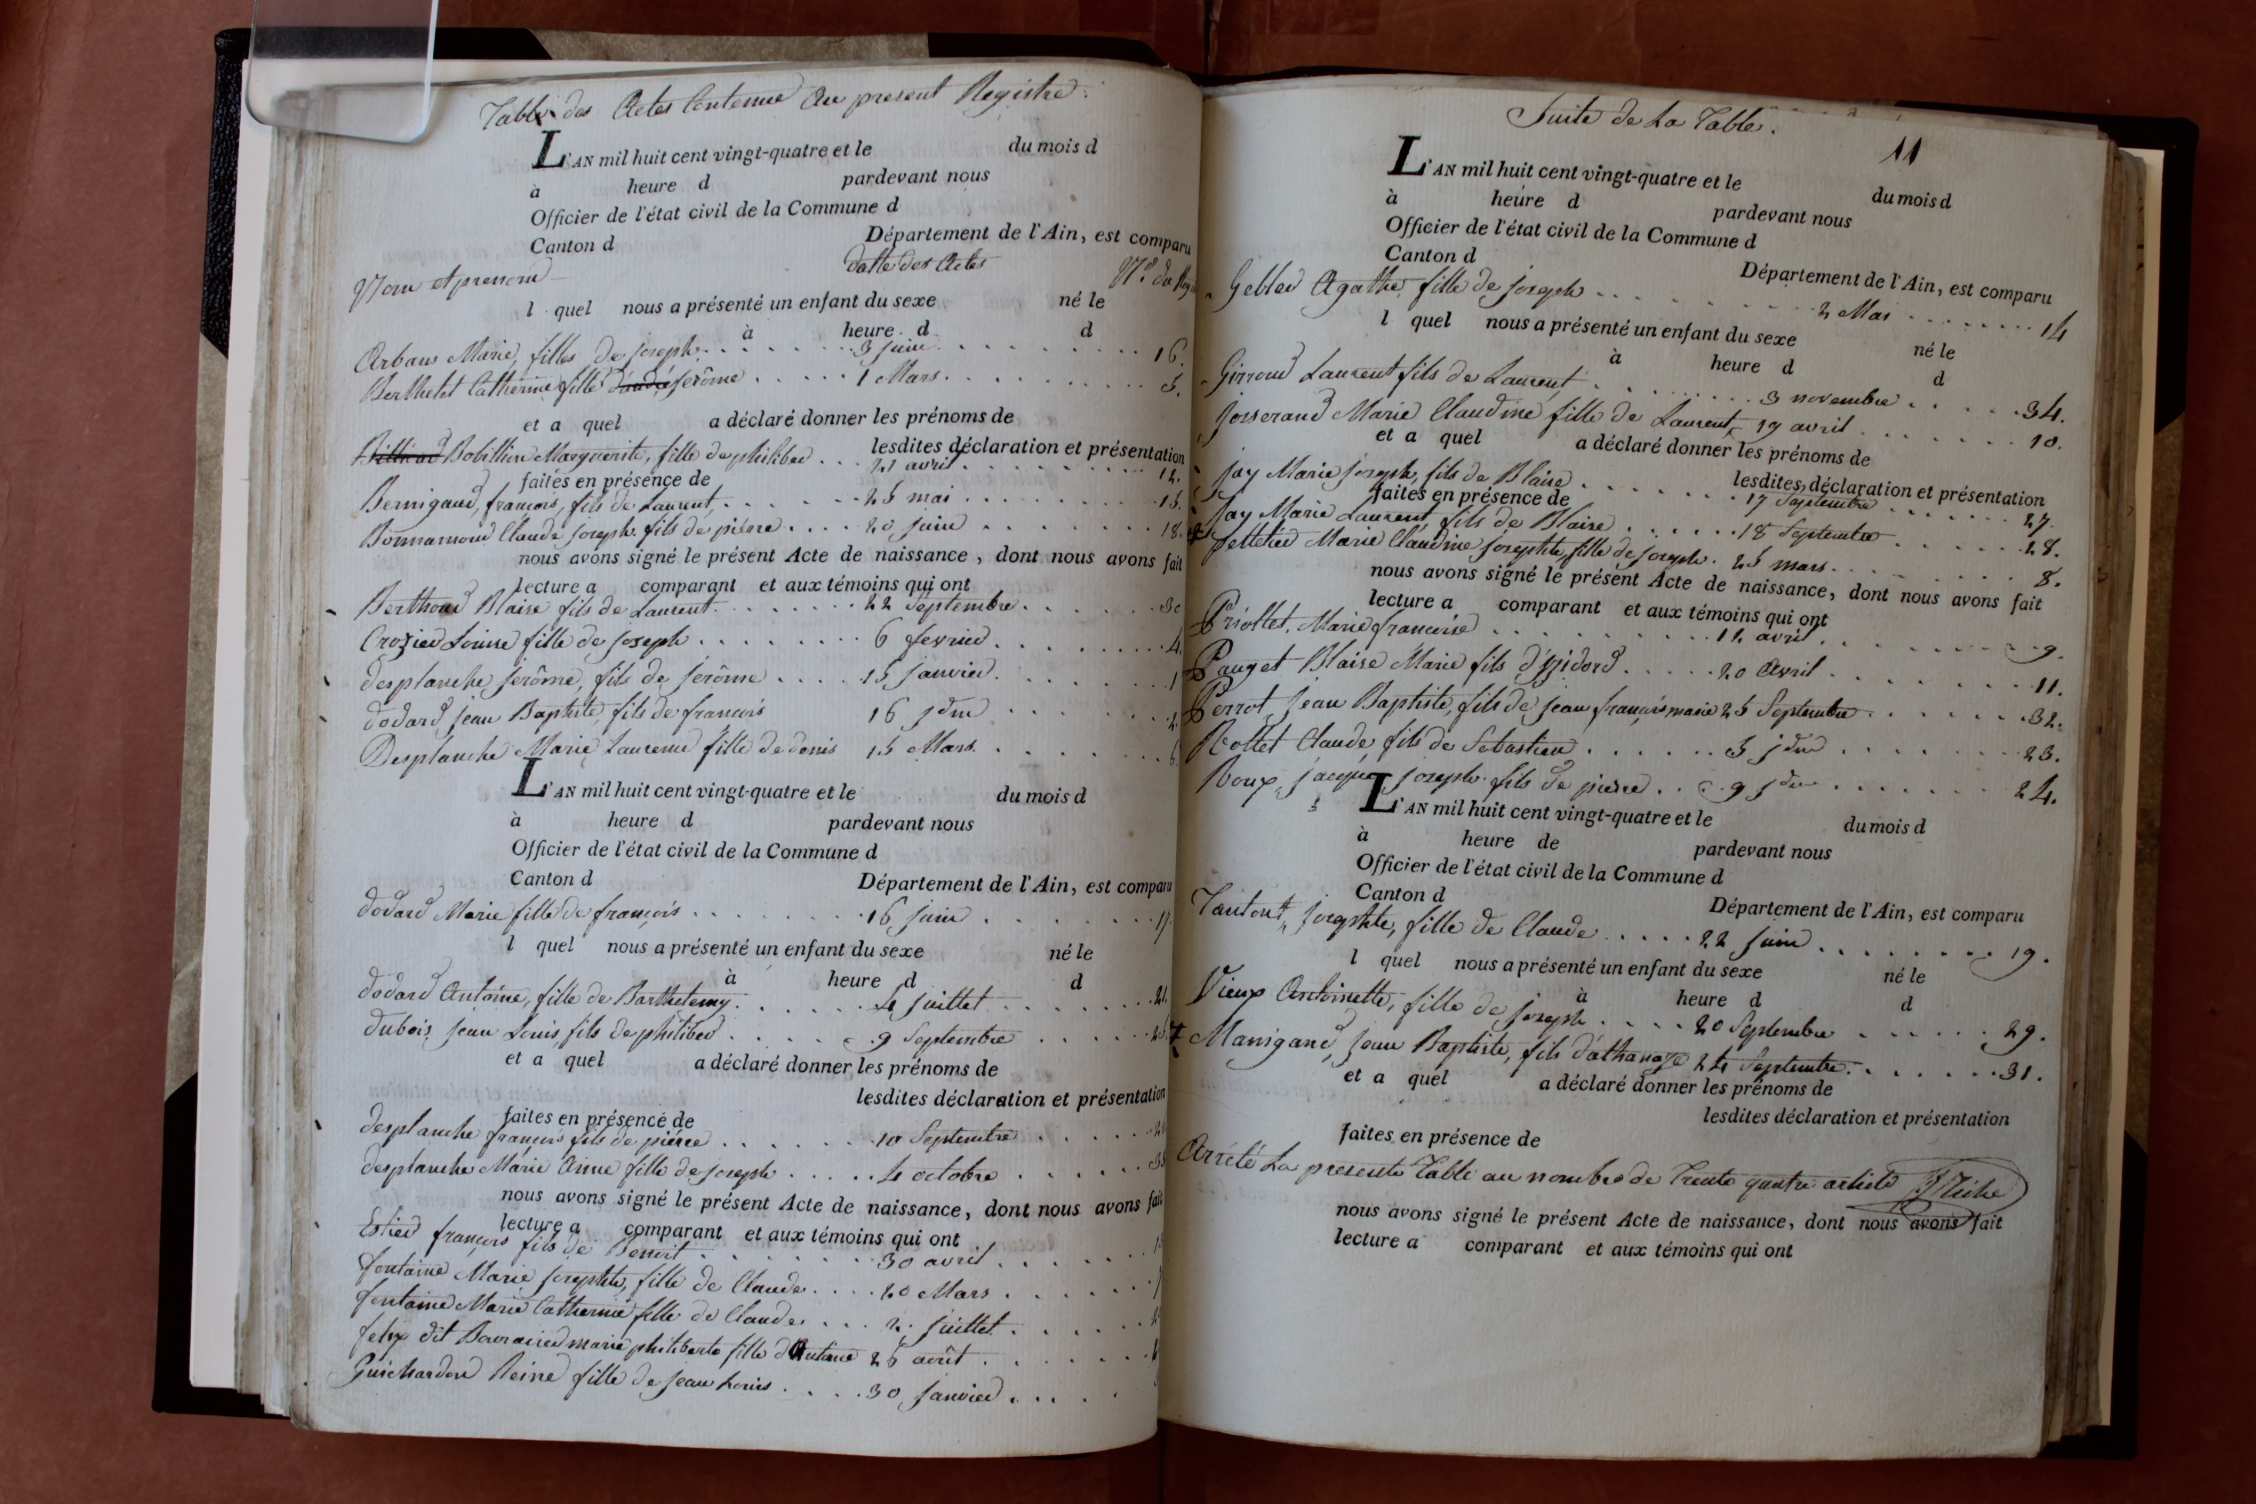 Table des Actes Contenue Au present Registre.
L'AN mil huit cent vingt-quatre et le du mois d
à heure d pardevant nous
Officier de l'état civil de la Commune d
Canton d Département de l'Ain, est comparu
Nom et prenom datte des Actes N.º du Reg
l quel nous a présenté un enfant du sexe né le
à heure d d
Arbaus Marie, fille de joseph 3 juin 16.
Berthelet Catherine fille jerôme 1 Mars 5.
et a quel a déclaré donner les prénoms de
lesdites déclaration et présentation
Bobillion Marguerite, fille de philibert 21 avril 12.
faites en présence de
Bernigaud, françois, fils de Laurent 25 mai 15.
Bonnamour Claude joseph fils de pierre 20 juin 18.
nous avons signé le présent Acte de naissance, dont nous avons fait
lecture a comparant et aux témoins qui ont
Berthoud Blaise fils de Laurent 22 Septembre 30
Crozier Louise fille de joseph 6 fevrier 4.
desplanche jerôme, fils de jerôme 15 janvier 1
dodard jean Baptiste, fils de françois 16 jdm 2.
Desplanche Marie Laurence fille de denis 15 Mars 6.
L'AN mil huit cent vingt-quatre et le du mois d
à heure d pardevant nous
Officier de l'état civil de la Commune d
Canton d Département de l'Ain, est comparu
dodard Marie fille de françois 16 juin 17.
l quel nous a présenté un enfant du sexe né le
à heure d d
dodard Antoine, fille de Barthelemy 4 juillet 21.
dubois jean Louis fils de philibert 9 Septembre
et a quel a déclaré donner les prénoms de
lesdites déclaration et présentation
faites en présence de
desplanche françois fils de pierre 10 Septembre
desplanche Marie Aimé fille de joseph 4 octobre
nous avons signé le présent Acte de naissance, dont nous avons fait
lecture a comparant et aux témoins qui ont
Estier françois fils de Benoit 30 avril
fontaine Marie josephte, fille de Claude 20 Mars
fontaine Marie Catherine fille de Claude 2 juillet
felix dit marie philiberte fille d'Antoine 26 août
Guichardon Reine fille de jean Louis 30 janvier
Suite de La Table.
11
L'AN mil huit cent vingt-quatre et le du mois d
à heure d pardevant nous
Officier de l'état civil de la Commune d
Canton d Département de l'Ain, est comparu
Gebler Agathe fille de joseph 2 Mai 14
l quel nous a présenté un enfant du sexe né le
à heure d d
Girroud Laurent fils de Laurent 3 novembre 34.
josserand Marie Claudine fille de Laurent 19 avril 10.
et a quel a déclaré donner les prénoms de
lesdites déclaration et présentation
jay Marie joseph, fils de Blaise 17 Septembre 27.
faites en présence de
jay Marie Laurent fils de Blaise 18 Septembre 28.
pelletier Marie Claudine josephte, fille de joseph 25 mars 8.
nous avons signé le présent Acte de naissance, dont nous avons fait
lecture a comparant et aux témoins qui ont
Priollet Marie françoise 12 avril 9.
Pauget Blaise Marie fils d'yzidord 20 Avril 11.
Perrot jean Baptiste, fils de jean françois marie 25 Septembre 32.
Rollet Claude fils de Sebastien 5 jdm 23.
Roux jacque joseph fils de pierre 9 jdm 24.
L'AN mil huit cent vingt-quatre et le du mois d
à heure de pardevant nous
Officier de l'état civil de la Commune d
Canton d Département de l'Ain, est comparu
Tantout, josephte, fille de Claude 22 juin 19.
l quel nous a présenté un enfant du sexe né le
à heure d d
Vieux Antoinette, fille de joseph 20 Septembre 29.
Manigand, jean Baptiste, fils d'athanaze 24 Septembre 31.
et a quel a déclaré donner les prénoms de
lesdites déclaration et présentation
faites en présence de
Arrêté La presente Table au nombre de Trente quatre article
nous avons signé le présent Acte de naissance, dont nous avons fait
lecture a comparant et aux témoins qui ont